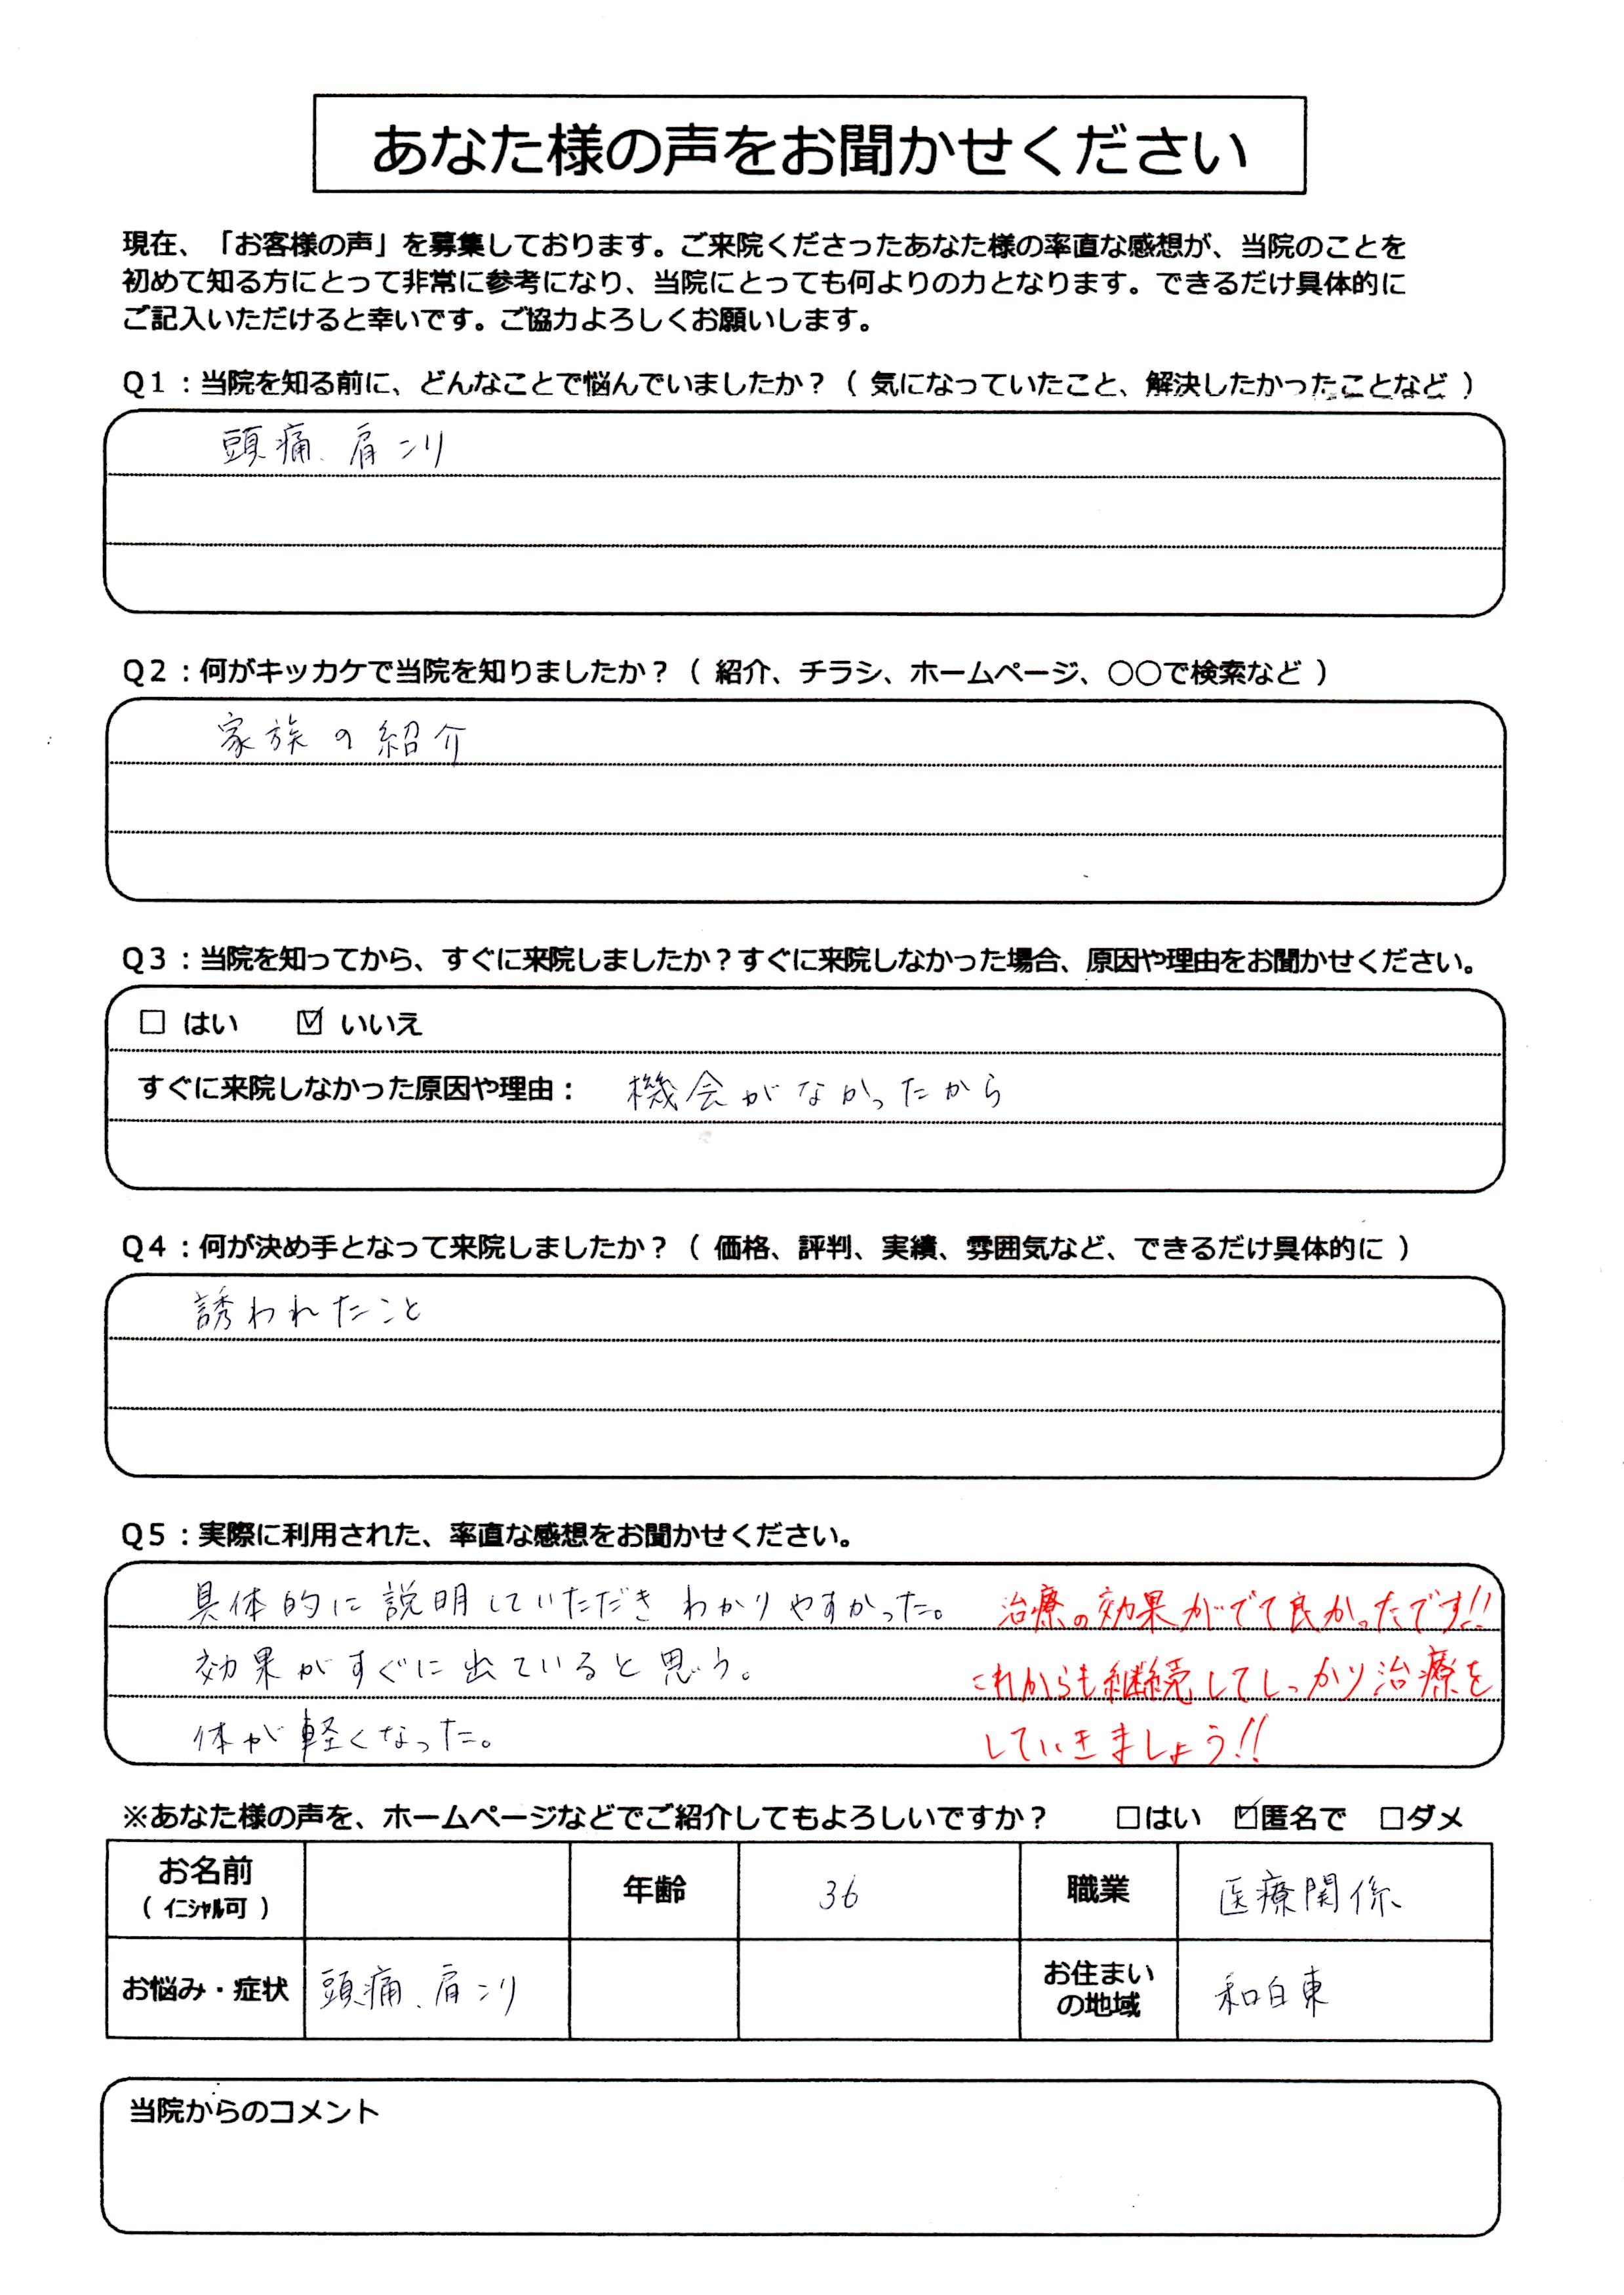 あなた様の声をお聞かせください
現在、「お客様の声」を募集しております。ご来院くださったあなた様の率直な感想が、当院のことを
初めて知る方にとって非常に参考になり、当院にとっても何よりの力となります。できるだけ具体的に
ご記入いただけると幸いです。ご協力よろしくお願いします。
Q1：当院を知る前に、どんなことで悩んでいましたか？（ 気になっていたこと、解決したかったことなど ）
頭痛、肩コリ
Q2：何がキッカケで当院を知りましたか？（ 紹介、チラシ、ホームページ、○○で検索など ）
家族の紹介
Q3：当院を知ってから、すぐに来院しましたか？すぐに来院しなかった場合、原因や理由をお聞かせください。
□ はい ☑ いいえ
すぐに来院しなかった原因や理由： 機会がなかったから
Q4：何が決め手となって来院しましたか？（ 価格、評判、実績、雰囲気など、できるだけ具体的に ）
誘われたこと
Q5：実際に利用された、率直な感想をお聞かせください。
具体的に説明していただきわかりやすかった。 治療の効果がでて良かったです!!
効果がすぐに出ていると思う。 これからも継続してしっかり治療を
体が軽くなった。 していきましょう!!
※あなた様の声を、ホームページなどでご紹介してもよろしいですか？ □はい ☑匿名で □ダメ
お名前 年齢 36 職業 医療関係
（ ｲﾆｼｬﾙ可 ）
お悩み・症状 頭痛、肩コリ お住まい の地域 和白東
当院からのコメント